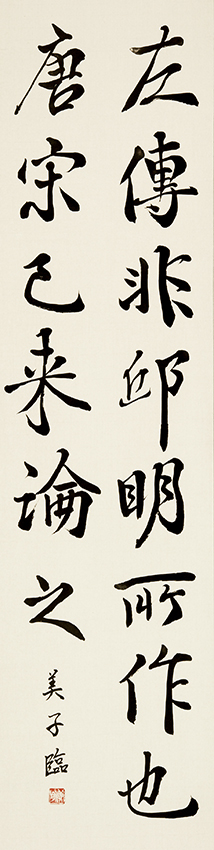 左傳非邱明所作也
唐宋已来論之
美子臨